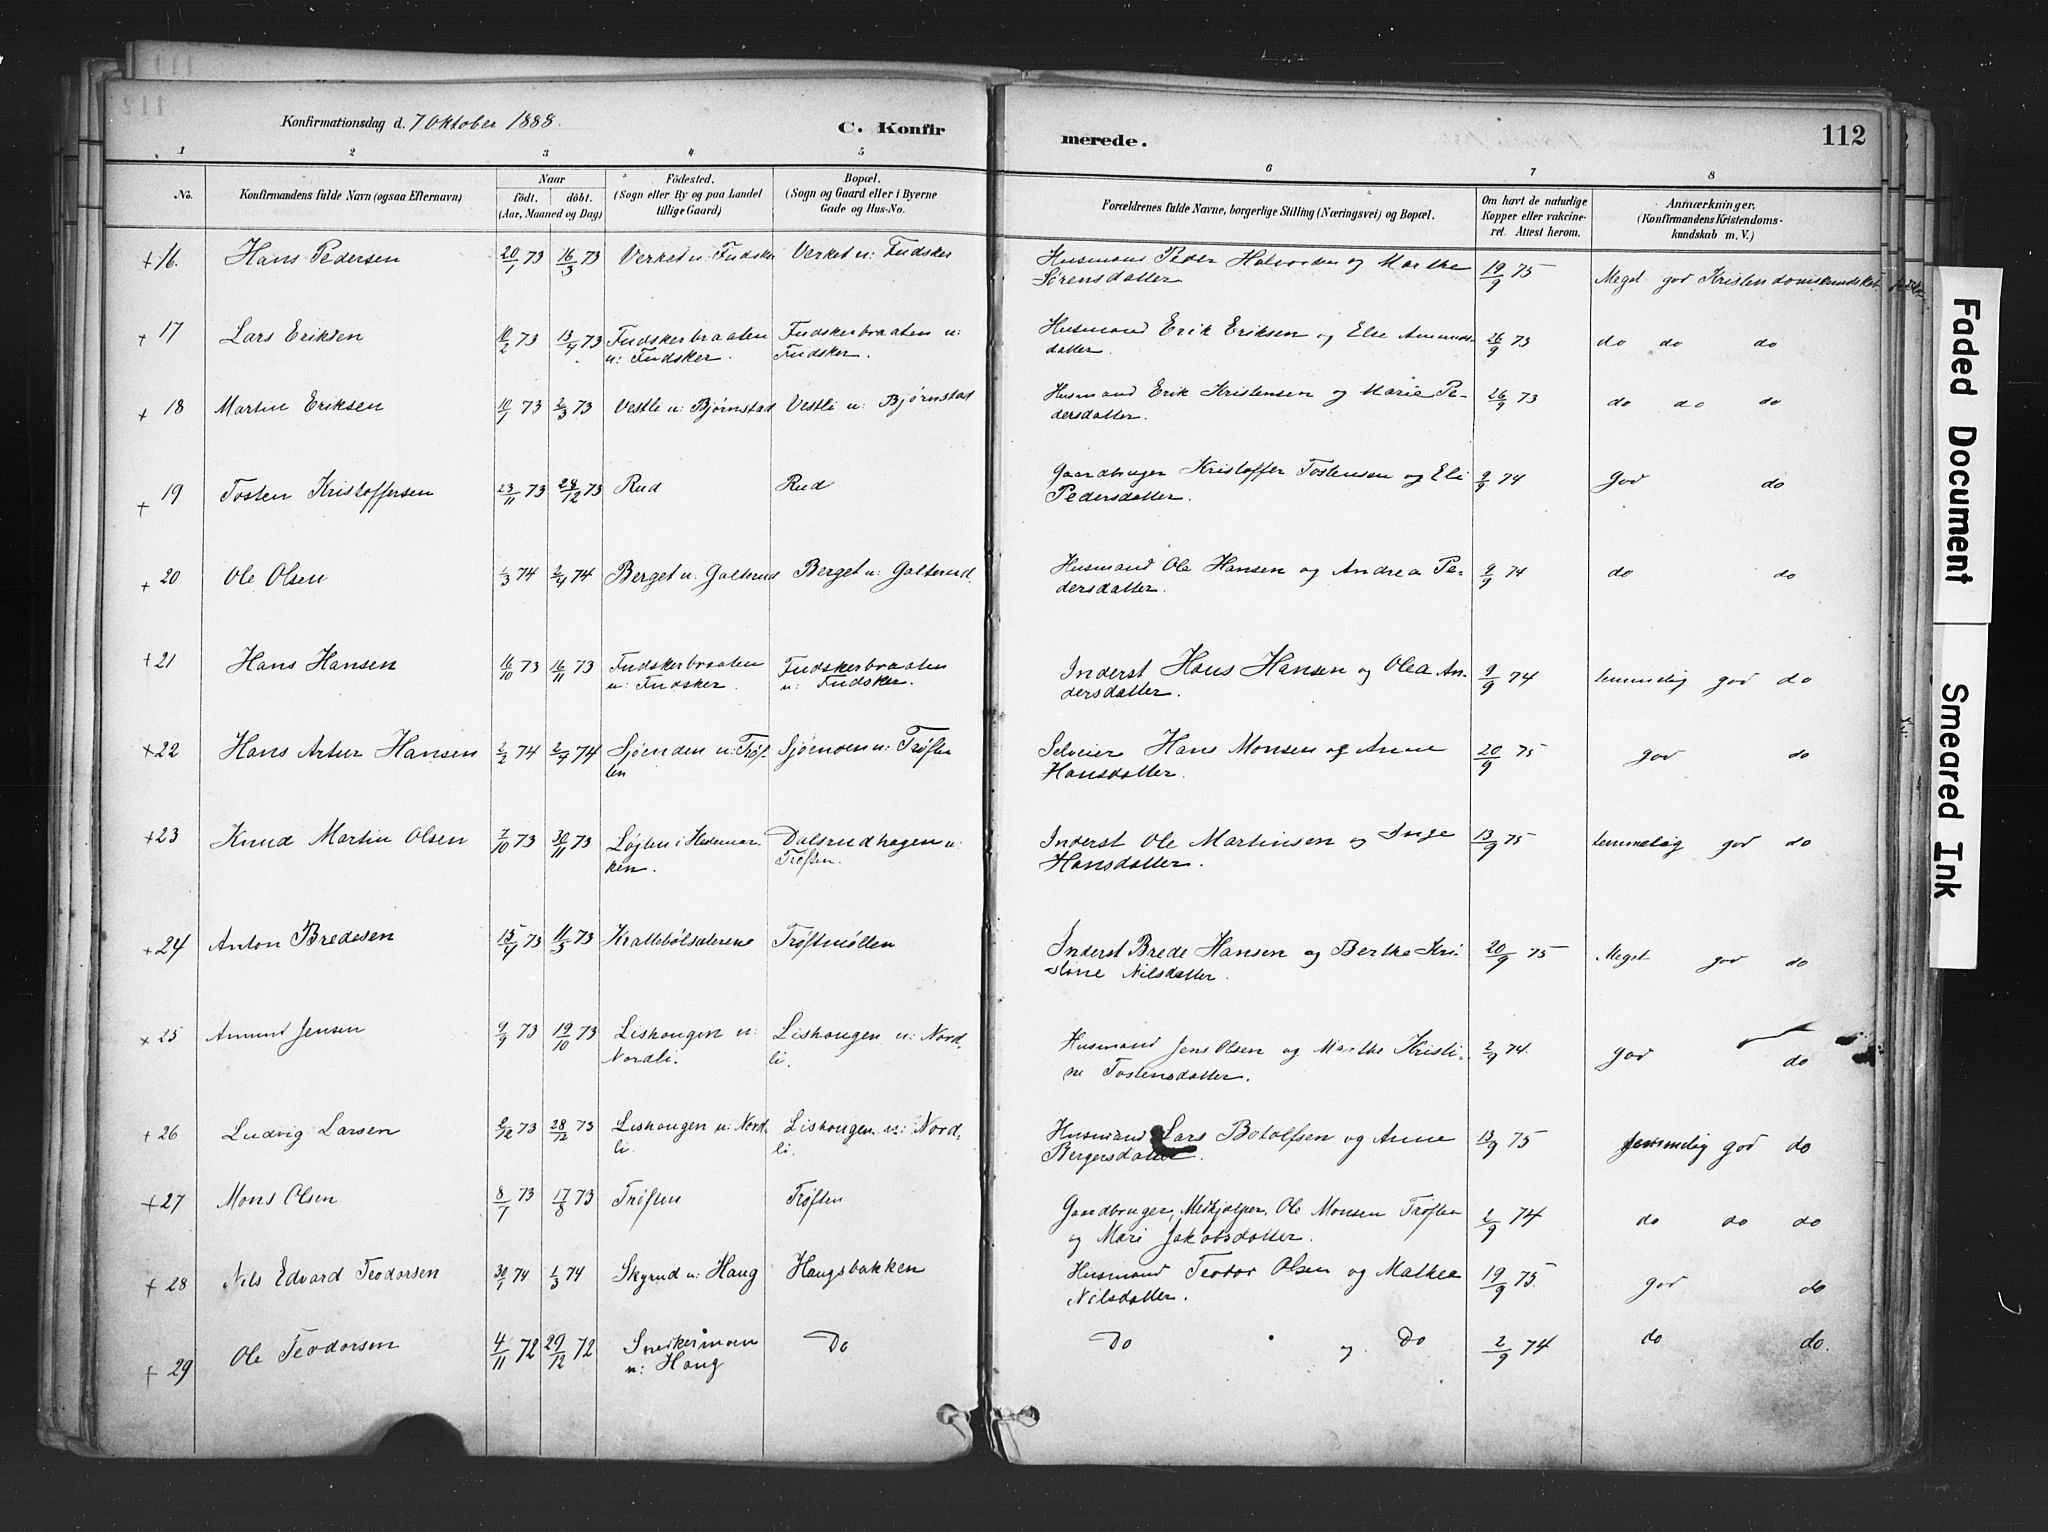 Konfirmationsdag d. 7 Oktober 1888.
C. Konfir
merede.
112
1 2 3 4 5 6 7 8
No.
Konfirmandens fulde Navn (ogsaa Efternavn)
Naar
födt. döbt.
(Aar, Maaned og Dag)
Födested.
(Sogn eller By og paa Landet
tillige Gaard)
Bopæl.
(Sogn og Gaard eller i Byerne
Gade og Hus-No.
Forældrenes fulde Navne, borgerlige Stilling (Næringsvei) og Bopæl.
Om havt de naturlige
Kopper eller vakcine-
ret. Attest herom.
Anmærkninger,
(Konfirmandens Kristendoms-
kundskab m. V.)
+ 16. Hans Pedersen 20/1 73 16/3 73 Verket u: Fudsker Verket u: Fudsker Husmand Peder Halvorsen og Marthe
Sørensdatter 19/9 75 Meget god Kristendomskundskab
+ 17 Lars Eriksen 10/2 73 13/4 73 Fudskerbraaten
u: Fudsker. Fudskerbraaten u:
Fudsker. Husmand Erik Eriksen og Else Amunds-
datter. 26/9 73 do do do
+ 18 Martin Eriksen 10/1 73 2/3 73 Vestli u: Bjørnstad Vestli u: Bjørnstad Husmand Erik Kristensen og Marie Pe-
dersdatter. 26/9 73 do do do
+ 19 Tosten Kristoffersen 23/11 73 28/12 73 Rud Rud Gaardbruger Kristoffer Tostensen og Eli
Pedersdatter. 2/9 74 god do
+ 20 Ole Olsen 1/3 74 2/4 74 Berget u: Galterud Berget u: Galterud. Husmand Ole Hansen og Andrea Pe-
dersdatter. 9/9 74 do do
+ 21 Hans Hansen 16/10 73 16/11 73 Fudskerbraaten
u: Fudsker. Fudskerbraaten
u: Fudsker. Inderst Hans Hansen og Olea An-
dersdatter. 9/9 74 temmelig god do
+ 22 Hans Artur Hansen 2/2 74 2/4 74 Sjøenden u: Trøf-
ten Sjøenden u: Trøften Selveier Hans Monsen og Anne
Hansdatter. 20/9 75 god do
+ 23 Knud Martin Olsen 7/10 73 30/11 73 Løjten i Hedemar-
ken. Dalsrudhagen u:
Trøften. Inderst Ole Martinsen og Inge
Hansdatter. 13/9 75 temmelig god do
+ 24 Anton Bredesen 15/4 73 11/5 73 Krattebølsæterene Trøftmøllen Inderst Brede Hansen og Berthe Kri-
stine Nilsdatter. 20/9 75 Meget god do
+ 25 Amund Jensen 9/9 73 19/10 73 Lishaugen u:
Nordli. Lishaugen u: Nord-
li. Husmand Jens Olsen og Marthe Kristi-
ne Tostensdatter. 2/9 74. god do
+ 26 Ludvig Larsen 2/12 73 28/12 73 Lishaugen u: Nord-
li. Lishaugen u: Nord-
li. Husmand Lars Botolfsen og Anne
Bergersdatter. 13/9 75 temmelig god do
+ 27 Mons Olsen 8/7 73 17/8 73 Trøften Trøften Gaardbruger, Medhjælper, Ole Monsen Trøften
og Mari Jakobsdatter. 2/9 74 do do do
+ 28 Nils Edvard Teodorsen 30/1 74 1/3 74 Skyrud u: Haug Haugsbakken Husmand Teodor Olsen og Mathea
Nilsdatter. 19/9 75. god do
+ 29 Ole Teodorsen 4/11 72 29/12 72 Snekkermoen
u: Haug Do Do og Do 2/9 74 do do.
Faded Document
Smeared Ink